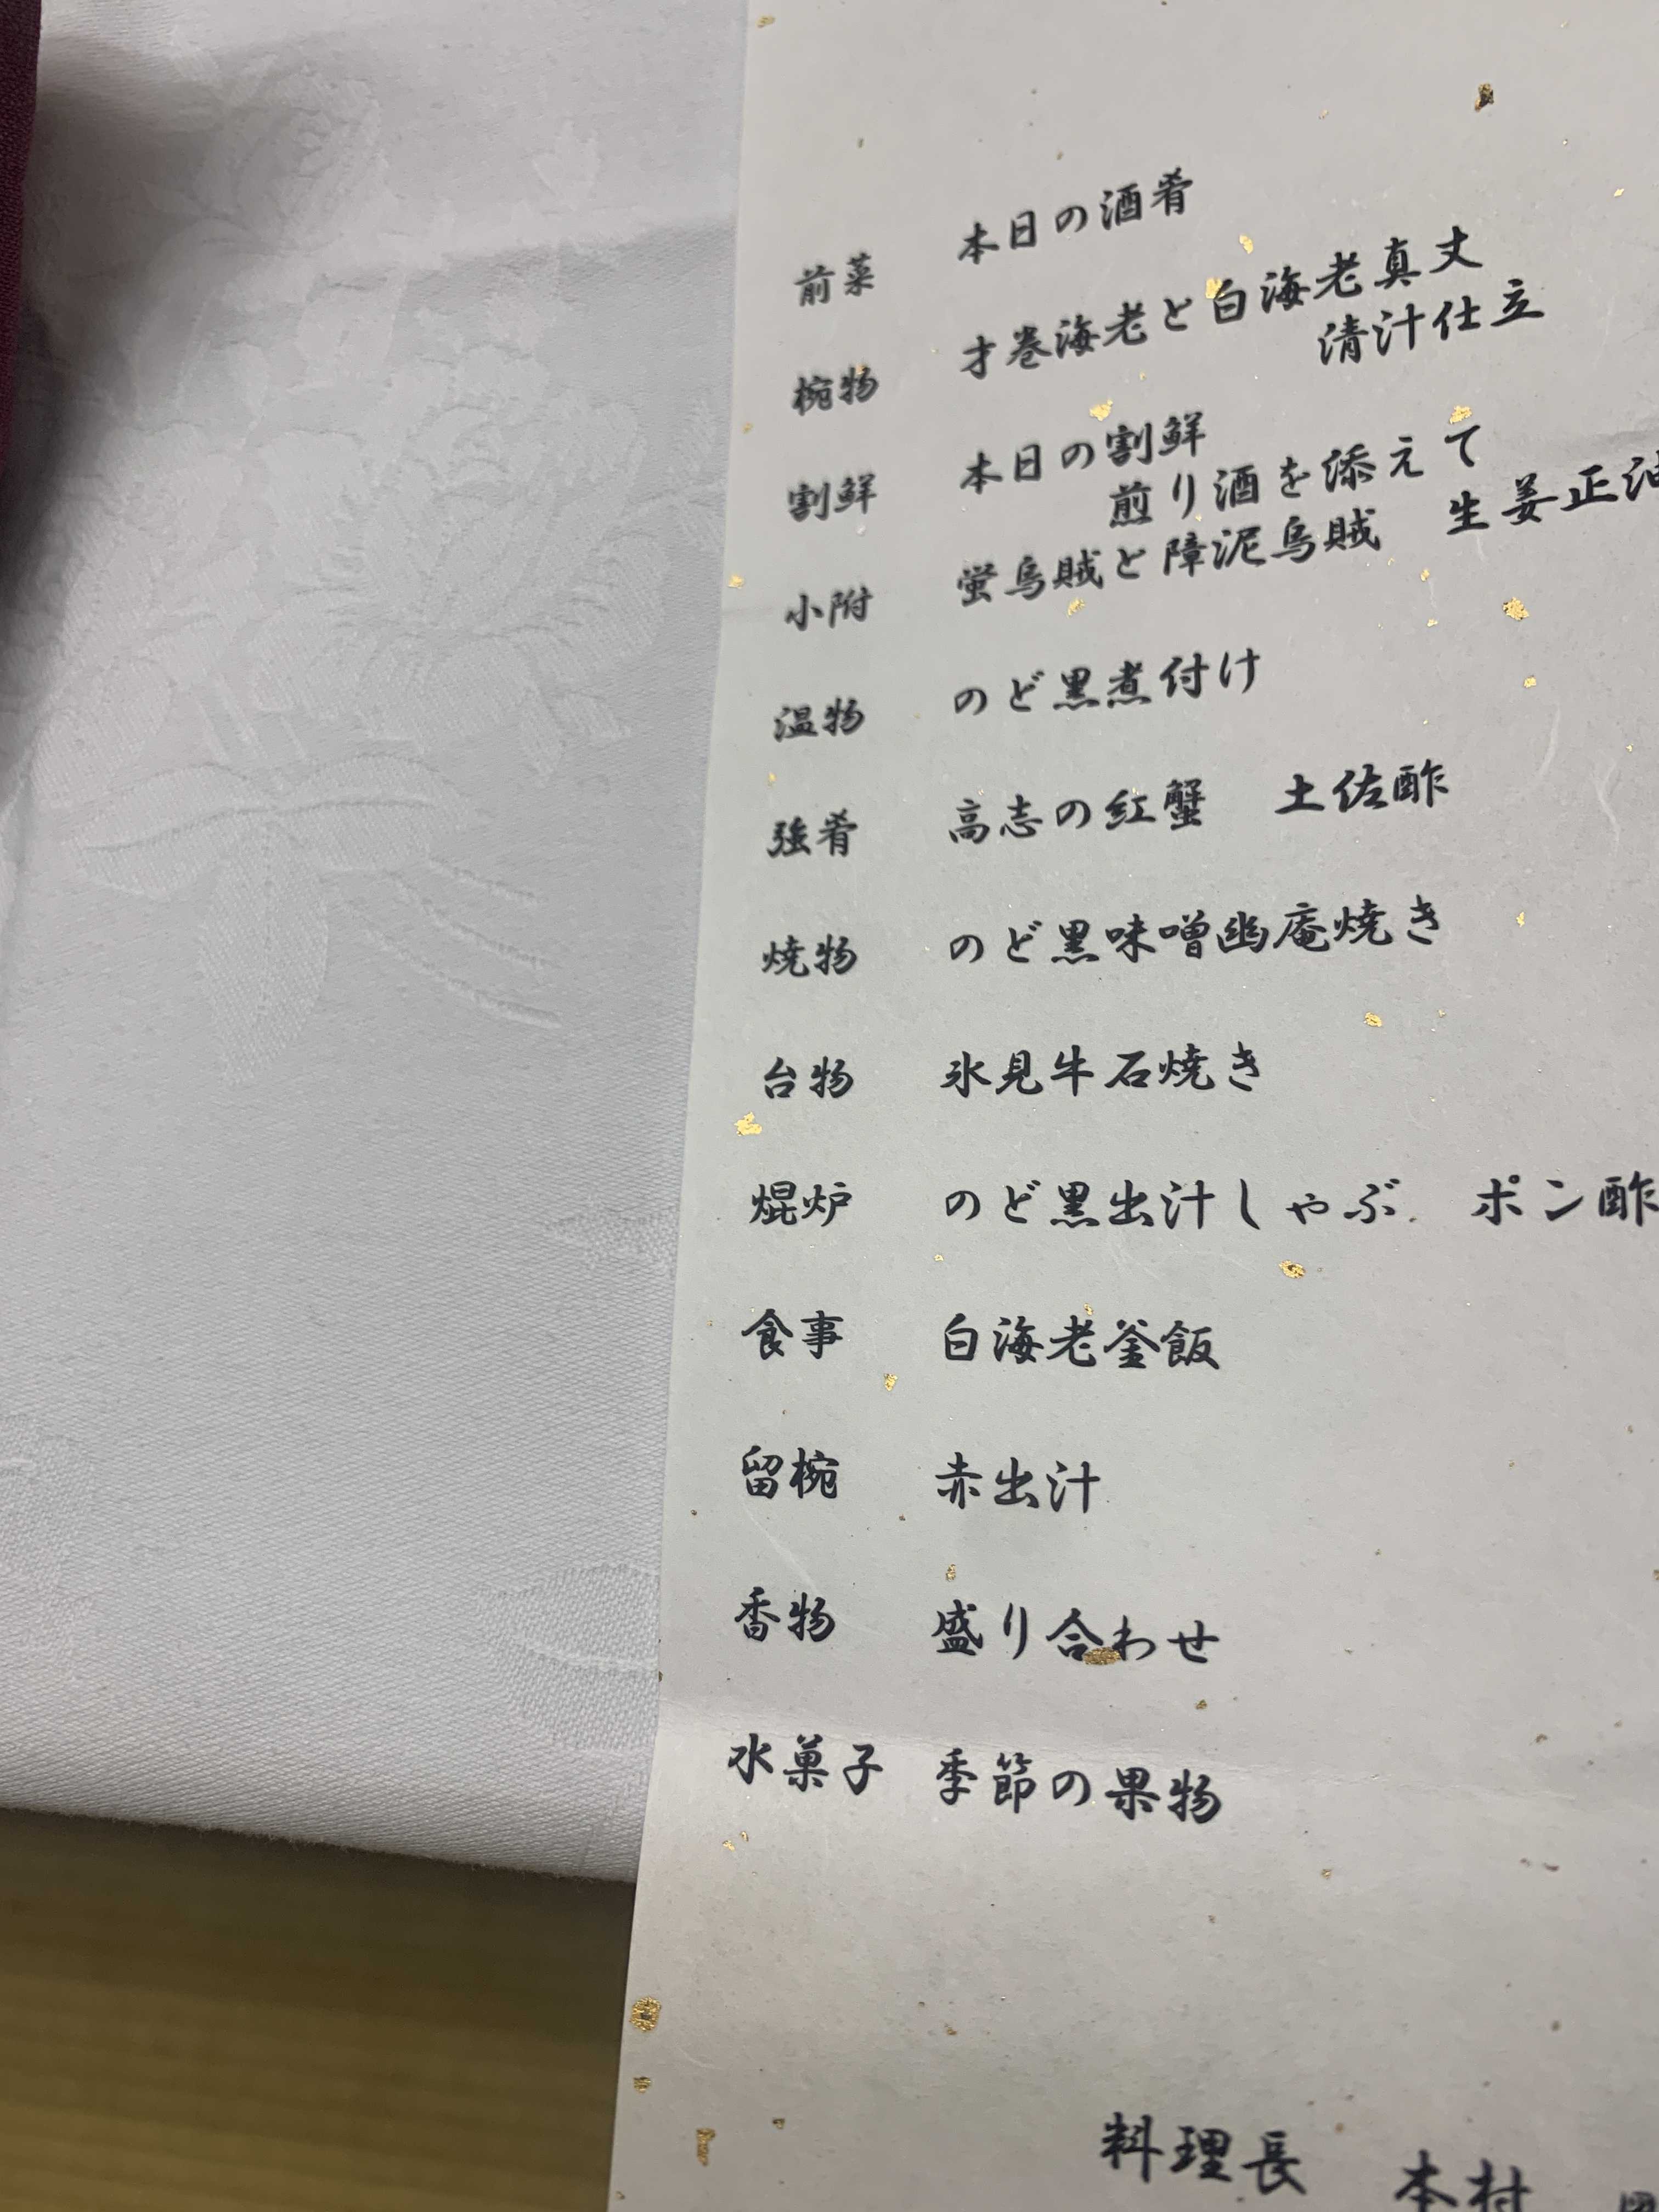 前菜 本日の酒肴
椀物 才巻海老と白海老真丈
清汁仕立
割鮮 本日の割鮮
煎り酒を添えて
小附 蛍烏賊と障泥烏賊 生姜正油
温物 のど黒煮付け
強肴 高志の紅蟹 土佐酢
焼物 のど黒味噌幽庵焼き
台物 氷見牛石焼き
焜炉 のど黒出汁しゃぶ ポン酢
食事 白海老釜飯
留椀 赤出汁
香物 盛り合わせ
水菓子 季節の果物
料理長 本村